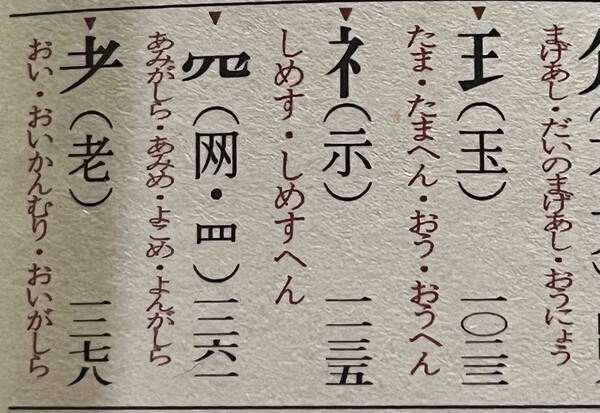 まげあし・だいのまげあし・おうにょう
王（玉）一〇二三
たま・たまへん・おう・おうへん
礻（示）一一三五
しめす・しめすへん
罒（网・罒）一二六一
あみがしら・あみめ・よこめ・よんがしら
耂（老）一二七八
おい・おいかんむり・おいがしら